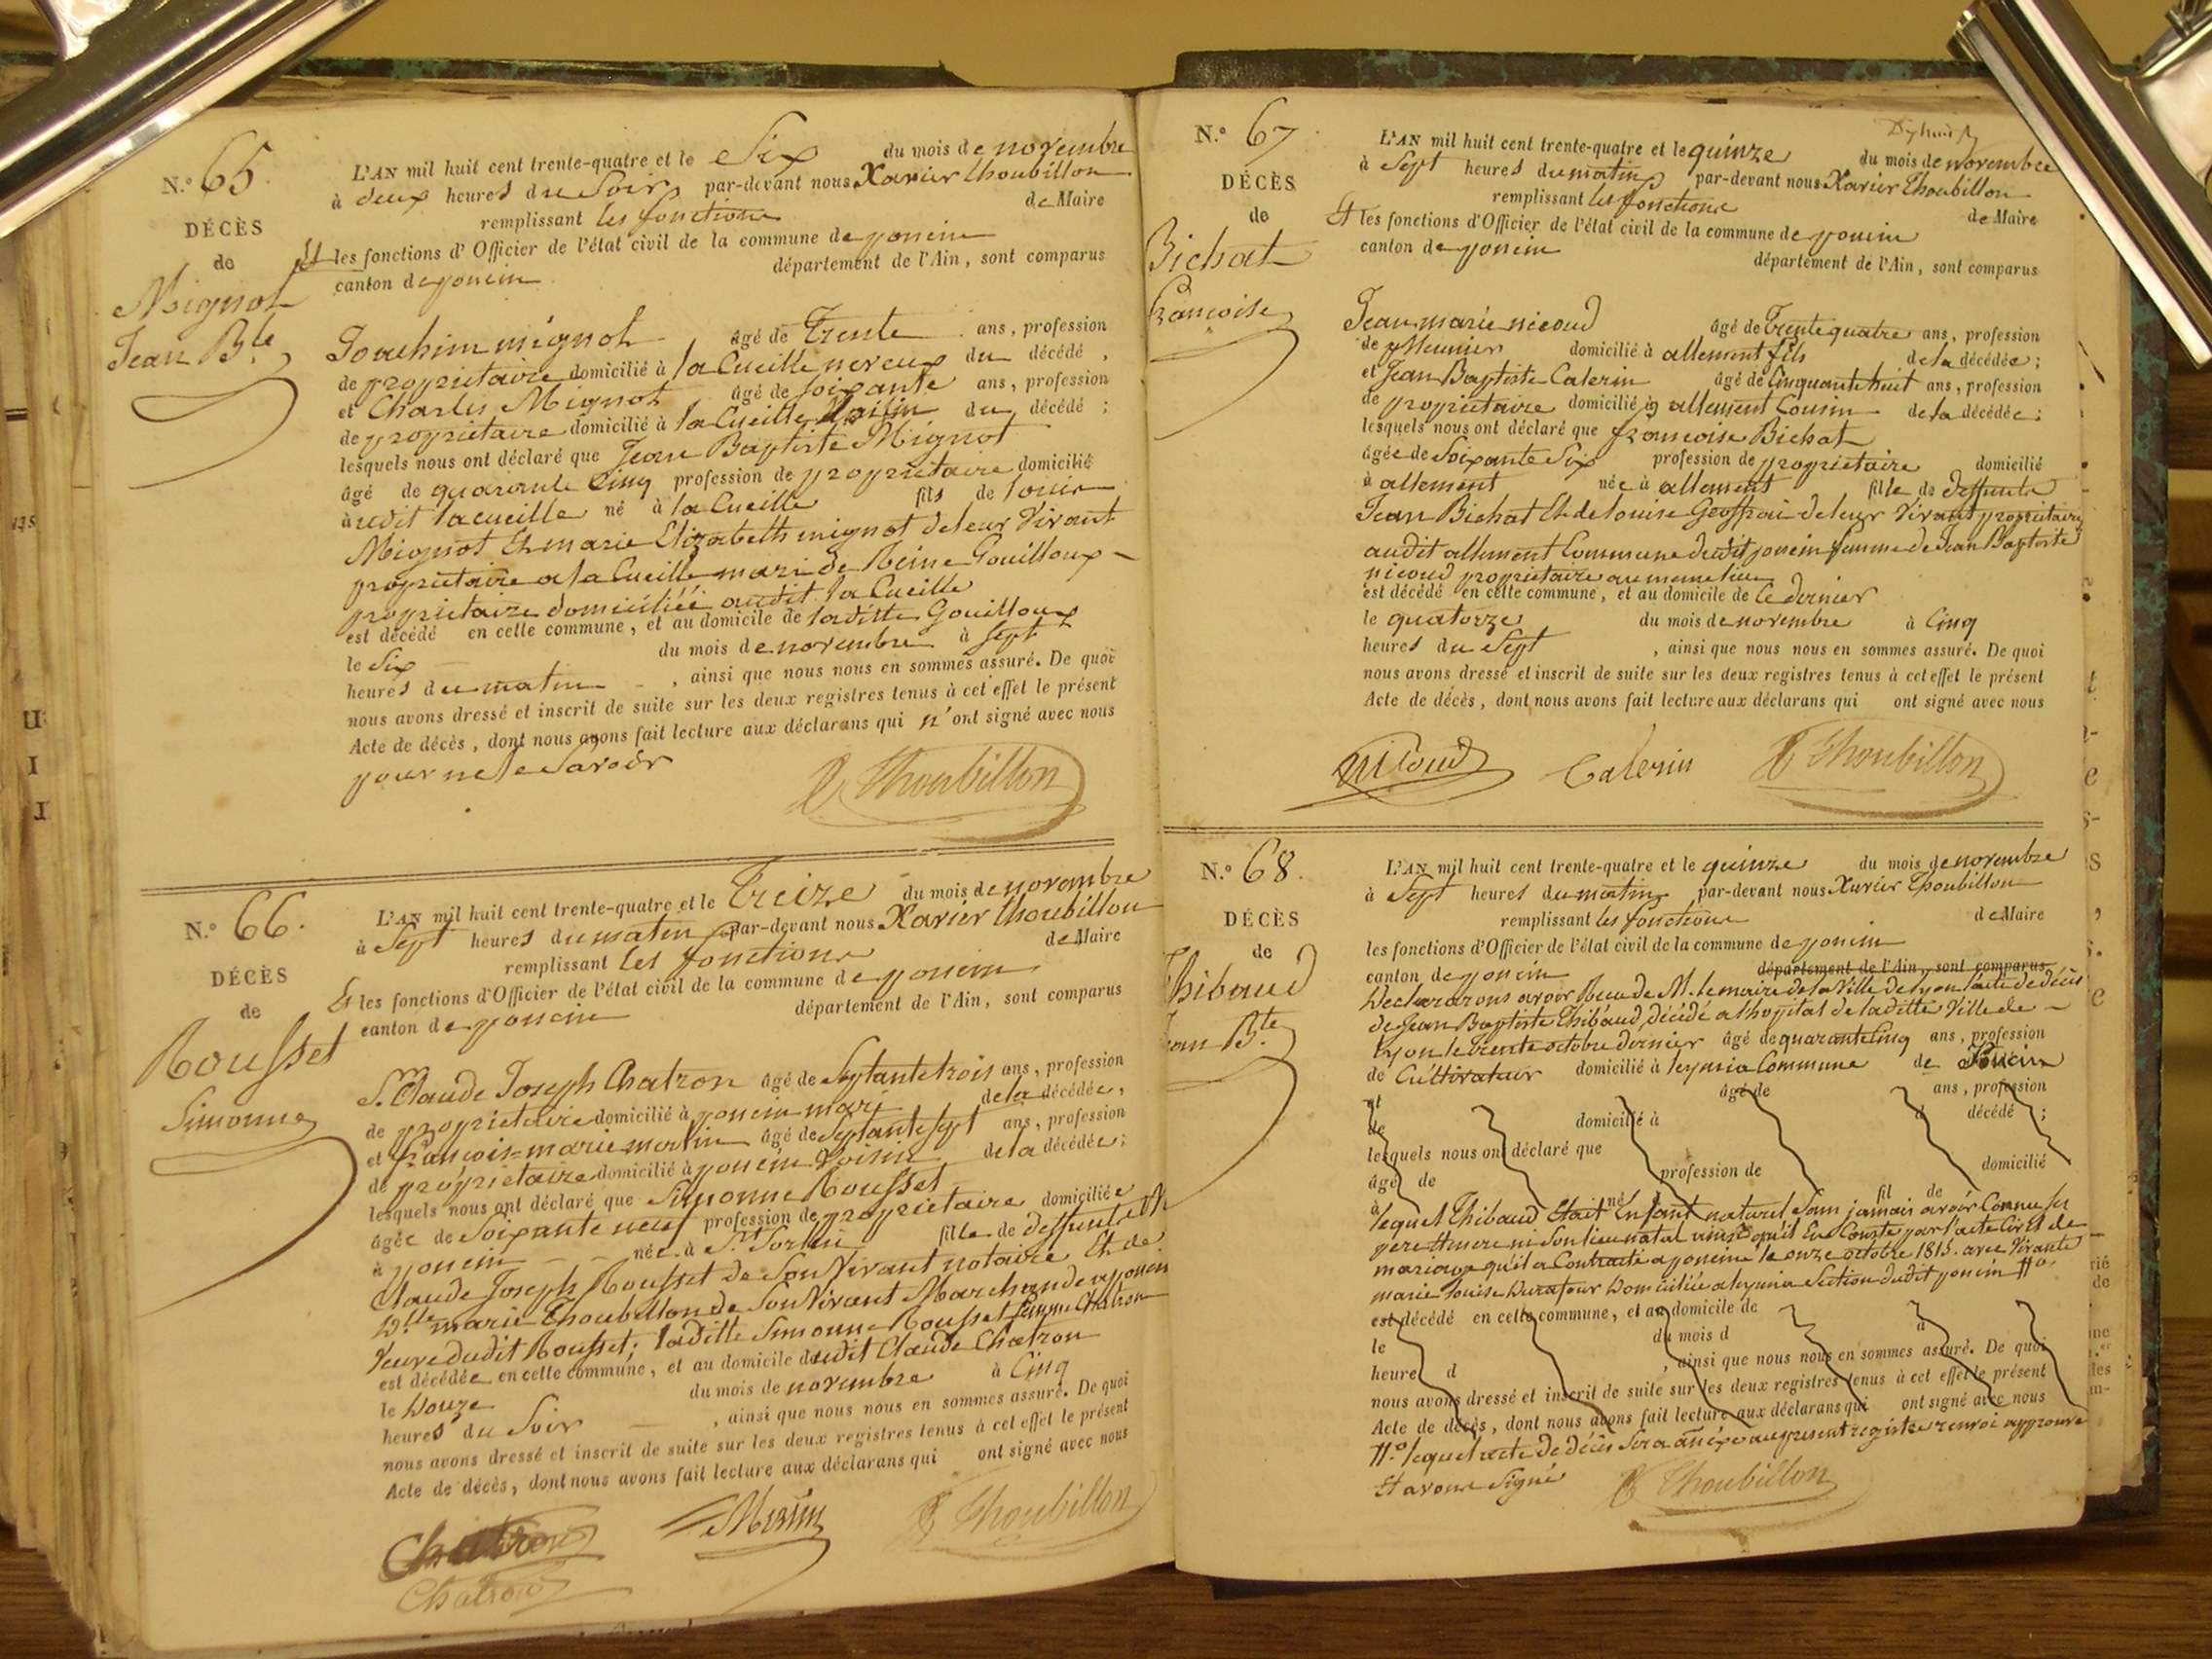 N.° 65.
DÉCÈS
de
Mignot
Jean B.te
L'AN mil huit cent trente-quatre et le Six du mois de novembre
à deux heures du Soir par-devant nous Xavier Thoubillon
remplissant les fonctions de Maire
Et les fonctions d'Officier de l'état civil de la commune de poncin
canton de poncin département de l'Ain, sont comparus
Joachim mignot âgé de Trente ans, profession
de proprietaire domicilié à la Cueille neveux du décédé,
et Charles Mignot âgé de soixante ans, profession
de proprietaire domicilié à la Cueille Voisin du décédé;
lesquels nous ont déclaré que Jean Baptiste Mignot
âgé de quarante Cinq profession de proprietaire domicilié
à udit lacueille né à la Cueille fils de louis
Mignot Et marie Elizabeth mignot deleur Vivant
proprietaire a la Cueille mari de Reine Gouilloux
proprietaire domiciliéé audit la Cueille
est décédé en cette commune, et au domicile de laditte Gouilloux
le Six du mois de novembre à Sept
heures du matin, ainsi que nous nous en sommes assuré. De quoi
nous avons dressé et inscrit de suite sur les deux registres tenus à cet effet le présent
Acte de décès, dont nous avons fait lecture aux déclarans qui n'ont signé avec nous
pour ne le Savoir
Thoubillon
N.° 66.
DÉCÈS
de
Rousset
Simonne
L'AN mil huit cent trente-quatre et le Treize du mois de novembre
à Sept heures du matin par-devant nous Xavier Thoubillon
remplissant les fonctions de Maire
Et les fonctions d'Officier de l'état civil de la commune de poncin
canton de poncin département de l'Ain, sont comparus
S. Claude Joseph Chatron âgé de Septante trois ans, profession
de proprietaire domicilié à poncin mari de la décédée,
et françois=marie morlin âgé de Septante Sept ans, profession
de proprietaire domicilié à poncin Voisin de la décédée;
lesquels nous ont déclaré que Simonne Rousset
âgée de Soixante neuf profession de proprietaire domiciliée
à poncin née à S.t Sorlin fille de deffunt
Claude Joseph Rousset de Son Vivant notaire Et de
D.lle marie Thoubillon de Son Vivant Marchande a poncin
Veuve dudit Rousset; laditte Simonne Rousset femme Chatron
est décédée en cette commune, et au domicile dudit Claude Chatron
le Douze du mois de novembre à Cinq
heures du Soir, ainsi que nous nous en sommes assuré. De quoi
nous avons dressé et inscrit de suite sur les deux registres tenus à cet effet le présent
Acte de décès, dont nous avons fait lecture aux déclarans qui ont signé avec nous
Chatron Thoubillon
Chatron
N.° 67
DÉCÈS
de
Bichat
francoise
L'AN mil huit cent trente-quatre et le quinze du mois de novembre
à Sept heures du matin par-devant nous Xavier Thoubillon
remplissant les fonctions de Maire
Et les fonctions d'Officier de l'état civil de la commune de poncin
canton de poncin département de l'Ain, sont comparus
Jean marie nicoud âgé de Trente quatre ans, profession
de Meunier domicilié à allement fils de la décédée;
et Jean Baptiste Calerin âgé de Cinquante huit ans, profession
de proprietaire domicilié à allement Cousin de la décédée;
lesquels nous ont déclaré que francoise Bichat
âgée de Soixante Six profession de proprietaire domicilié
à allement née à allement fille de deffunts
Jean Bichat Et de louise Geoffrai deleur Vivant proprietaire
audit allement Commune dudit poncin femme de Jean Baptiste
nicoud proprietaire au meme lieu
est décédé en cette commune, et au domicile de Ce dernier
le quatorze du mois de novembre à Cinq
heures du Sept, ainsi que nous nous en sommes assuré. De quoi
nous avons dressé et inscrit de suite sur les deux registres tenus à cet effet le présent
Acte de décès, dont nous avons fait lecture aux déclarans qui ont signé avec nous
nicoud Calerin Thoubillon
N.° 68.
DÉCÈS
de
Thibaud
Jean B.te
L'AN mil huit cent trente-quatre et le quinze du mois de novembre
à Sept heures du matin par-devant nous Xavier Thoubillon
remplissant les fonctions de Maire
les fonctions d'Officier de l'état civil de la commune de poncin
canton de poncin département de l'Ain, sont comparus
Declarons avoir Recu de M. le maire de la Ville de lyon l'acte de décès
de Jean Baptiste Thibaud, décédé a l'hopital de laditte Ville de
Lyon le trente octobre dernier âgé de quarante Cinq ans, profession
de Cultivateur domicilié à leymia Commune de Poncin
et âgé de ans, profession
de domicilié à d décédé;
lesquels nous ont déclaré que
âgé de profession de domicilié
à né fil de
lequel Thibaud Etait Enfant naturel Sans jamais avoir Connu Ses
pere Et mere ni Son lieu natal ainsi qu'il En Conste par l'acte Civil de
mariage qu'il a Contracté a poncin le onze octobre 1815. avec Vivante
marie louise Durafour Domiciliée a leymia Section dudit poncin
est décédé en cette commune, et au domicile de
le du mois d à
heure d, ainsi que nous nous en sommes assuré. De quoi
nous avons dressé et inscrit de suite sur les deux registres tenus à cet effet le présent
Acte de décès, dont nous avons fait lecture aux déclarans qui ont signé avec nous
lequel acte de décès Sera anéxé au present registre renvoi approuvé
Et avons Signé Thoubillon